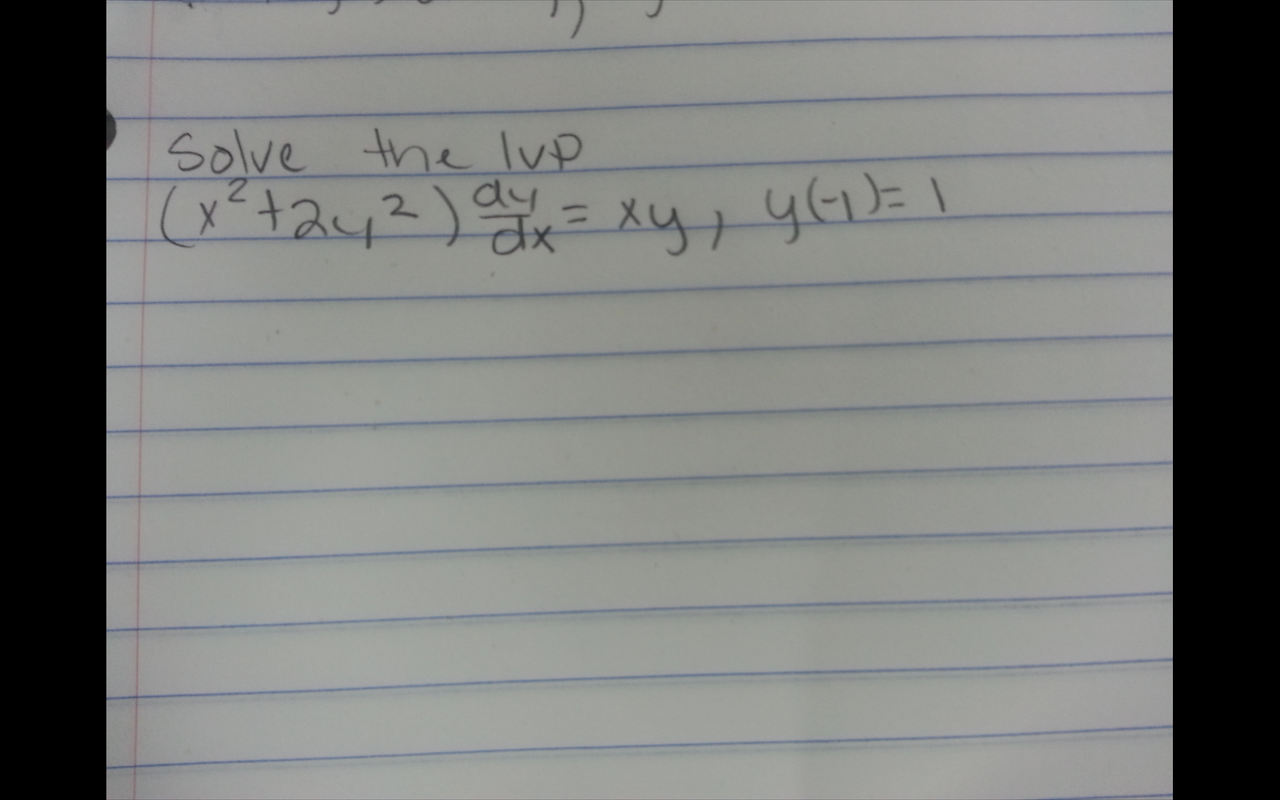 Solve the IVP
(x² + 2y²) dy/dx = xy, y(-1) = 1